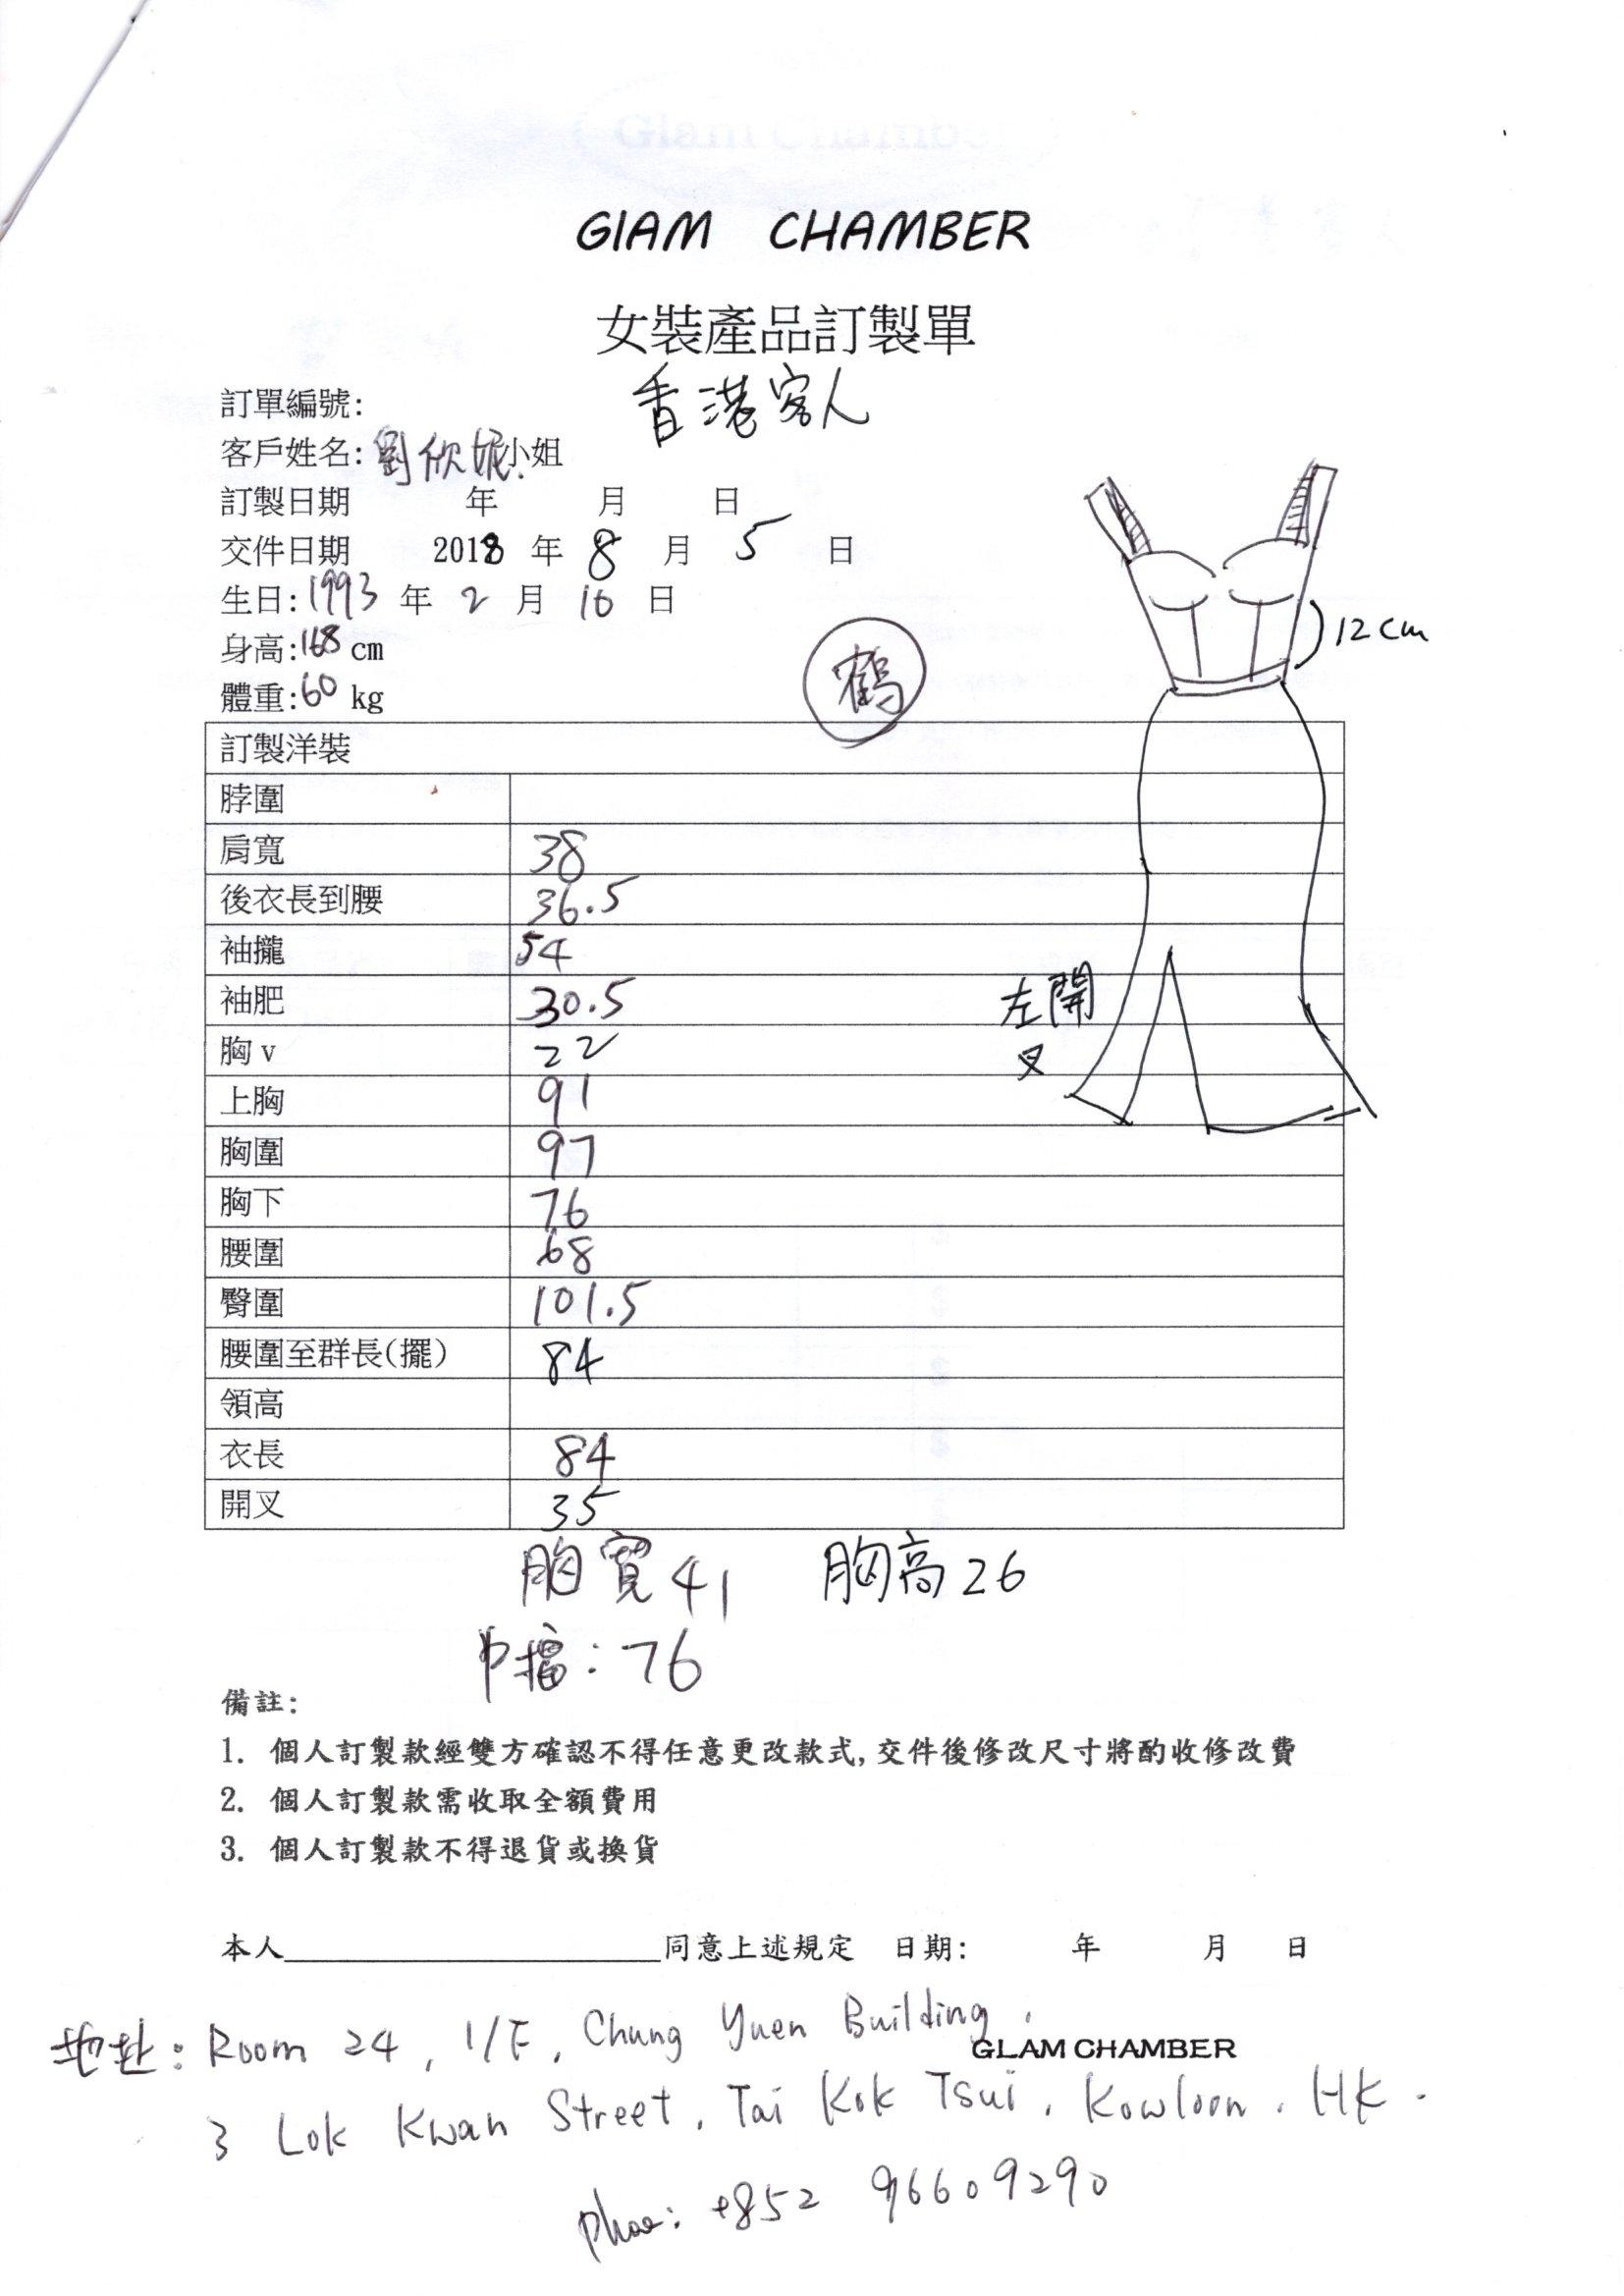 GIAM CHAMBER
女裝產品訂製單
香港客人
訂單編號:
客戶姓名: 劉欣妮小姐
訂製日期 年 月 日
交件日期 2018 年 8 月 5 日
生日: 1993 年 2 月 16 日
身高: 168 cm
體重: 60 kg
鶴
12 cm
訂製洋裝
脖圍
肩寬 38
後衣長到腰 36.5
袖攏 54
袖肥 30.5
左開
叉
胸 v 22
上胸 91
胸圍 97
胸下 76
腰圍 68
臀圍 101.5
腰圍至群長(擺) 84
領高
衣長 84
開叉 35
胸寬 41 胸高 26
: 76
備註:
1. 個人訂製款經雙方確認不得任意更改款式,交件後修改尺寸將酌收修改費
2. 個人訂製款需收取全額費用
3. 個人訂製款不得退貨或換貨
本人 同意上述規定 日期: 年 月 日
地址: Room 24, 1/F, Chung Yuen Building,
GLAM CHAMBER
3 Lok Kwan Street, Tai Kok Tsui, Kowloon, HK.
phoe: +852 96609290